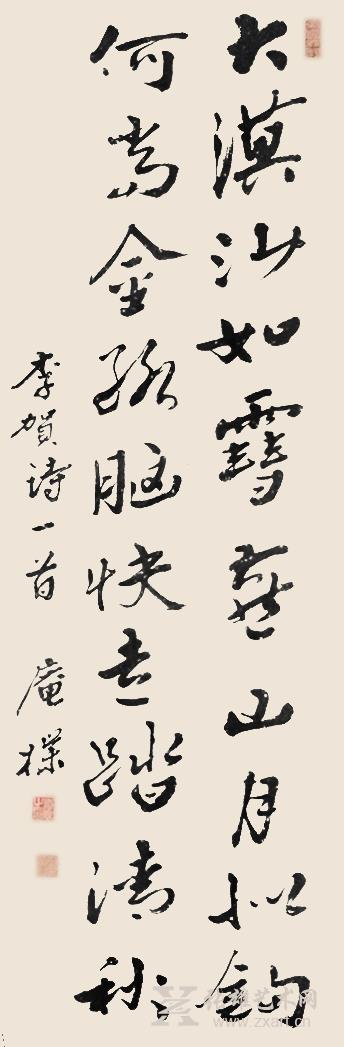 大漠沙如雪燕山月似鈎
何当金络脑快走踏清秋
李贺诗一首 庵樸
艺术网
www.zxart.cn